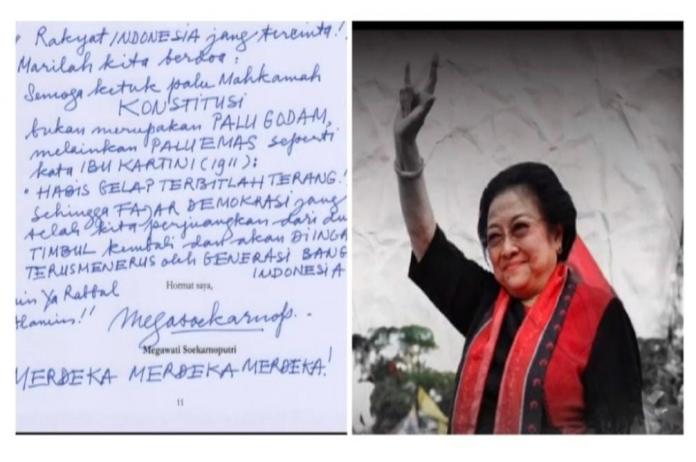 Rakyat INDONESIA jang tercinta!
Marilah kita berdoa:
Semoga ketuk palu Mahkamah
KONSTITUSI
bukan merupakan PALU GODAM,
melainkan PALU EMAS seperti
kata IBU KARTINI (1911):
"HABIS GELAP TERBITLAH TERANG!
Sehingga FAJAR DEMOKRASI jang
telah kita perjuangkan dari du
TIMBUL kembali dan akan DIINGA
TERUSMENERUS oleh GENERASI BANG
INDONESIA
Hormat saya,
in Ya Rabbal
lamin!!
Megasoekarnop.
Megawati Soekarnoputri
MERDEKA MERDEKA MERDEKA!
11